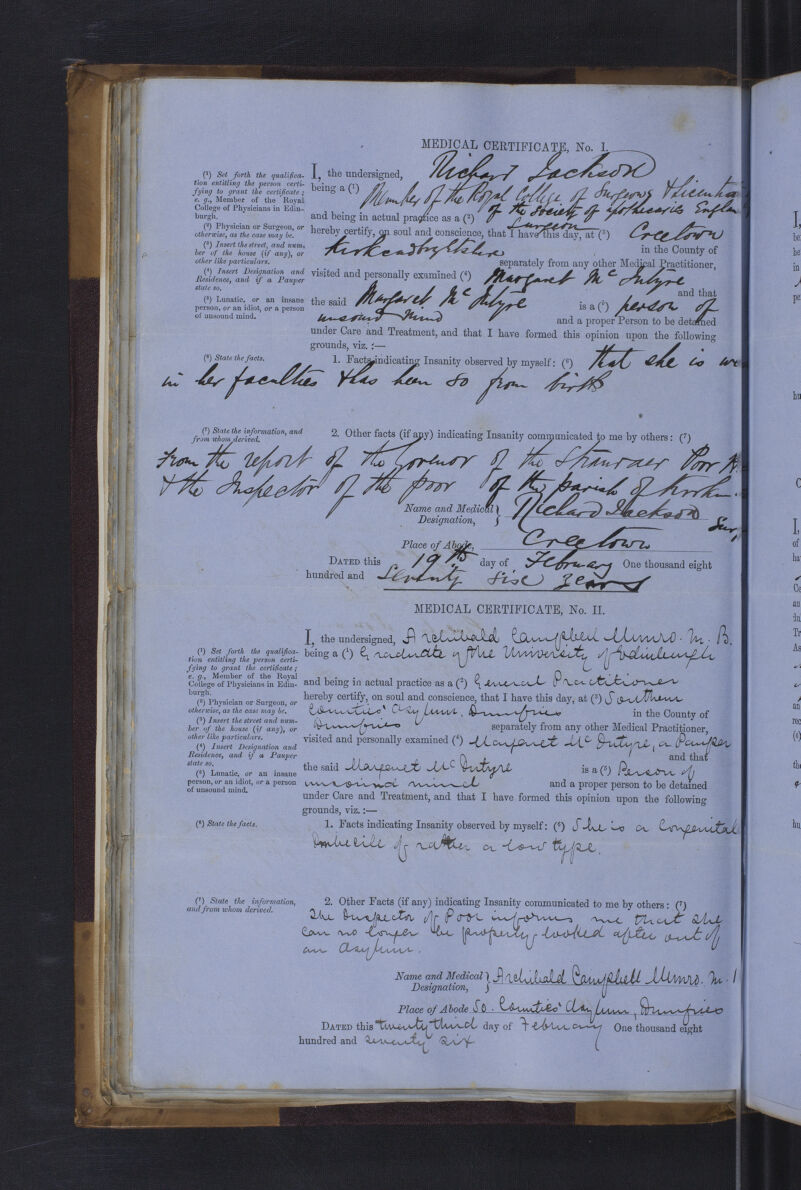 MEDICAL CERTIFICATE, No. I.
(¹) Set forth the qualifica-
tion entitling the person certi-
fying to grant the certificate;
e. g., Member of the Royal
College of Physicians in Edin-
burgh.
(²) Physician or Surgeon, or
otherwise, as the case may be.
(³) Insert the street, and num-
ber of the house (if any), or
other like particulars.
(⁴) Insert Designation and
Residence, and if a Pauper
state so.
(⁵) Lunatic, or an insane
person, or an idiot, or a person
of unsound mind.
I, the undersigned, Richard Jackson
being a (¹) Member of the Royal College of Surgeons & Licentia
of the Society of Apothecaries Englan
and being in actual practice as a (²) Surgeon
hereby certify, on soul and conscience, that I have this day, at (³) Creetown
Kirkcudbrightshire in the County of
separately from any other Medical Practitioner,
visited and personally examined (⁴) Margaret McIntyre
and that
the said Margaret McIntyre is a (⁵) person of
unsound mind and a proper Person to be detained
under Care and Treatment, and that I have formed this opinion upon the following
grounds, viz. :—
(⁶) State the facts.
1. Facts indicating Insanity observed by myself: (⁶) that she is we
in her faculties & has been so from birth
(⁷) State the information, and
from whom derived.
2. Other facts (if any) indicating Insanity communicated to me by others: (⁷)
From the report of the Govenor of the Stranraer Poor H
& the Inspector of the poor of the parish of Kirkm
Name and Medical
Designation, Richard Jackson Sur
Place of Abode, Creetown
DATED this 19th day of February One thousand eight
hundred and Seventy Six Years
MEDICAL CERTIFICATE, No. II.
(¹) Set forth the qualifica-
tion entitling the person certi-
fying to grant the certificate;
e. g., Member of the Royal
College of Physicians in Edin-
burgh.
(²) Physician or Surgeon, or
otherwise, as the case may be.
(³) Insert the street and num-
ber of the house (if any), or
other like particulars.
(⁴) Insert Designation and
Residence, and if a Pauper
state so.
(⁵) Lunatic, or an insane
person, or an idiot, or a person
of unsound mind.
I, the undersigned, Archibald Campbell Munro. M. B.
being a (¹) Graduate of the University of Edinburgh
and being in actual practice as a (²) General Practitioner
hereby certify, on soul and conscience, that I have this day, at (³) Southern
Counties' Asylum, Dumfries in the County of
Dumfries separately from any other Medical Practitioner,
visited and personally examined (⁴) Margaret McIntyre, a Pauper
and that
the said Margaret McIntyre is a (⁵) Person of
unsound mind and a proper person to be detained
under Care and Treatment, and that I have formed this opinion upon the following
grounds, viz. :—
(⁶) State the facts.
1. Facts indicating Insanity observed by myself: (⁶) She is a Congenital
Imbecile of rather a low type.
(⁷) State the information,
and from whom derived.
2. Other Facts (if any) indicating Insanity communicated to me by others: (⁷)
The Inspector of Poor informs me that she
can no longer be properly looked after out of
an Asylum.
Name and Medical
Designation, Archibald Campbell Munro. M.
Place of Abode So. Counties' Asylum, Dumfries
DATED this twenty third day of February One thousand eight
hundred and seventy six